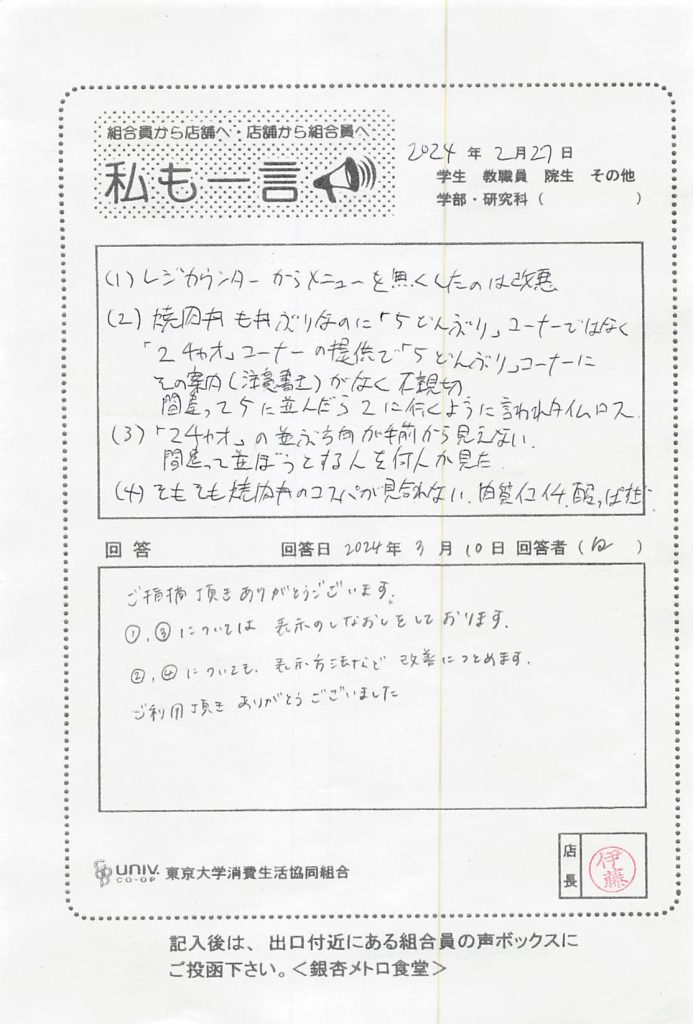 組合員から店舗へ・店舗から組合員へ
私も一言
2024 年 2月27日
学生 教職員 院生 その他
学部・研究科 ( )
(1) レジカウンターからメニューを無くしたのは改悪
(2) 焼肉丼も丼ぶりなのに「5どんぶり」コーナーではなく
「2 イチオシ」コーナーの提供で「5どんぶり」コーナーに
その案内(注意書き)がなく不親切
間違って5に並んだら2に行くように言われタイムロス
(3) 「2イチオシ」の並ぶ方向が手前から見えない.
間違って並ぼうとする人を何人か見た
(4) そもそも焼肉丼のコスパが見合わない.肉質
回 答
回答日 2024年 3 月 10 日 回答者 ( )
ご指摘頂きありがとうございます。
①,③については 表示のしなおしをしております.
②,④についても、表示方法など 改善につとめます.
ご利用頂き ありがとうございました
UNIV. CO-OP 東京大学消費生活協同組合
店長
伊藤
記入後は、出口付近にある組合員の声ボックスに
ご投函下さい。<銀杏メトロ食堂>